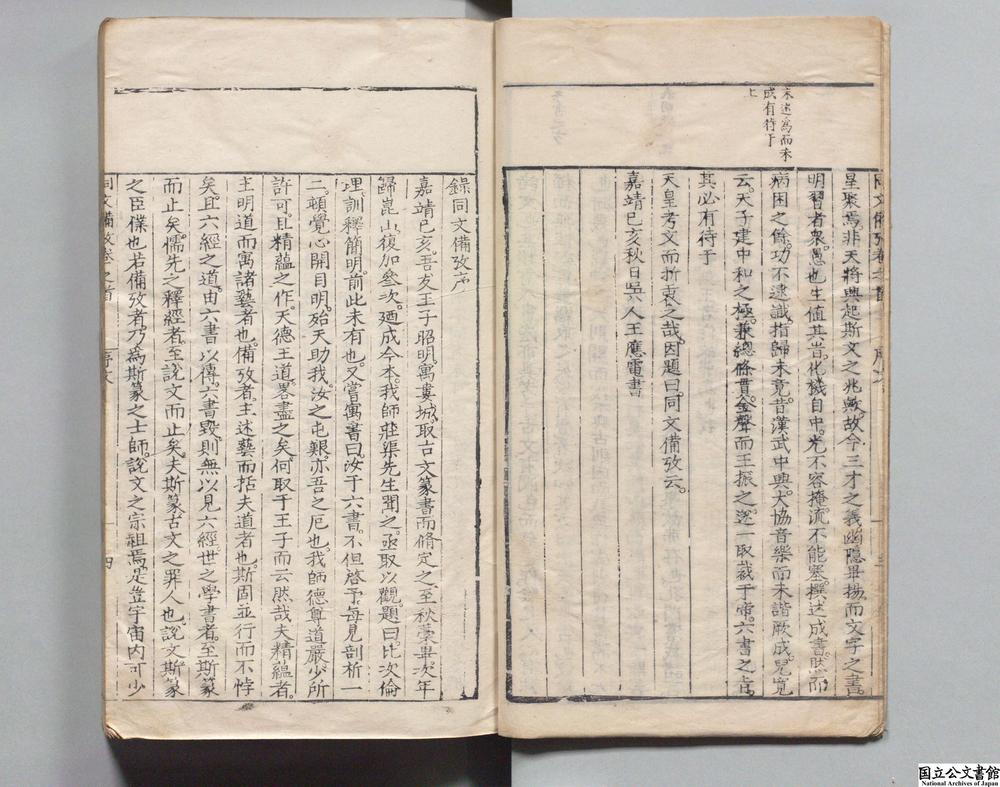 未述寫而未
成有待于
上
同文備攷卷之首 序文 三
星聚焉非天將興起斯文之兆歟故今三才之義幽隱畢揚而文字之書
明習者衆愚也生値其旹化機自中光不容掩流不能塞撰述成書然所
病困之餘功不逮識指歸未竟昔漢武中興大協音樂而未諧厥成兒寬
云天子建中和之極兼總條貫金聲而玉振之遂一取裁于帝六書之旨
其必有待于
天皇考文而折衷之哉因題曰同文備攷云
嘉靖己亥秋日吳人王應電書
錄同文備攷序
嘉靖己亥吾友王子昭明寓婁城取古文篆書而脩定之至秋藁畢次年
歸崑山復加參次廼成今本我師莊渠先生聞之亟取以觀題曰比次倫
理訓釋簡明前此未有也又嘗寓書曰汝于六書不但啓予每見剖析一
二頓覺心開目明殆天助我汝之屯艱亦吾之厄也我師德尊道嚴少所
許可且精蘊之作天德王道畧盡之矣何取于王子而云然哉夫精蘊者
主明道而寓諸藝者也備攷者主述藝而括夫道者也斯固並行而不悖
矣且六經之道由六書以傳六書毀則無以見六經世之學書者至斯篆
而止矣儒先之釋經者至說文而止矣夫斯篆古文之罪人也說文斯篆
之臣僕也若備攷者乃為斯篆之士師說文之宗祖焉是豈宇宙内可少
同文備攷卷之首 序文 四
国立公文書館
National Archives of Japan